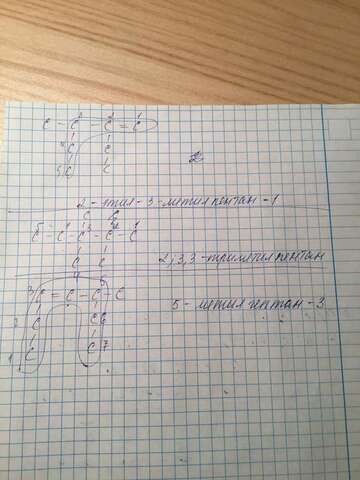 C - C - C = C
C C
C C
2 - этил - 3 - метил пентан - 1
C C
C - C - C - C - C
C C
2,3,3 - триметил пентан
C = C - C - C
5 - метил гептан - 3
C C 6
C C 7